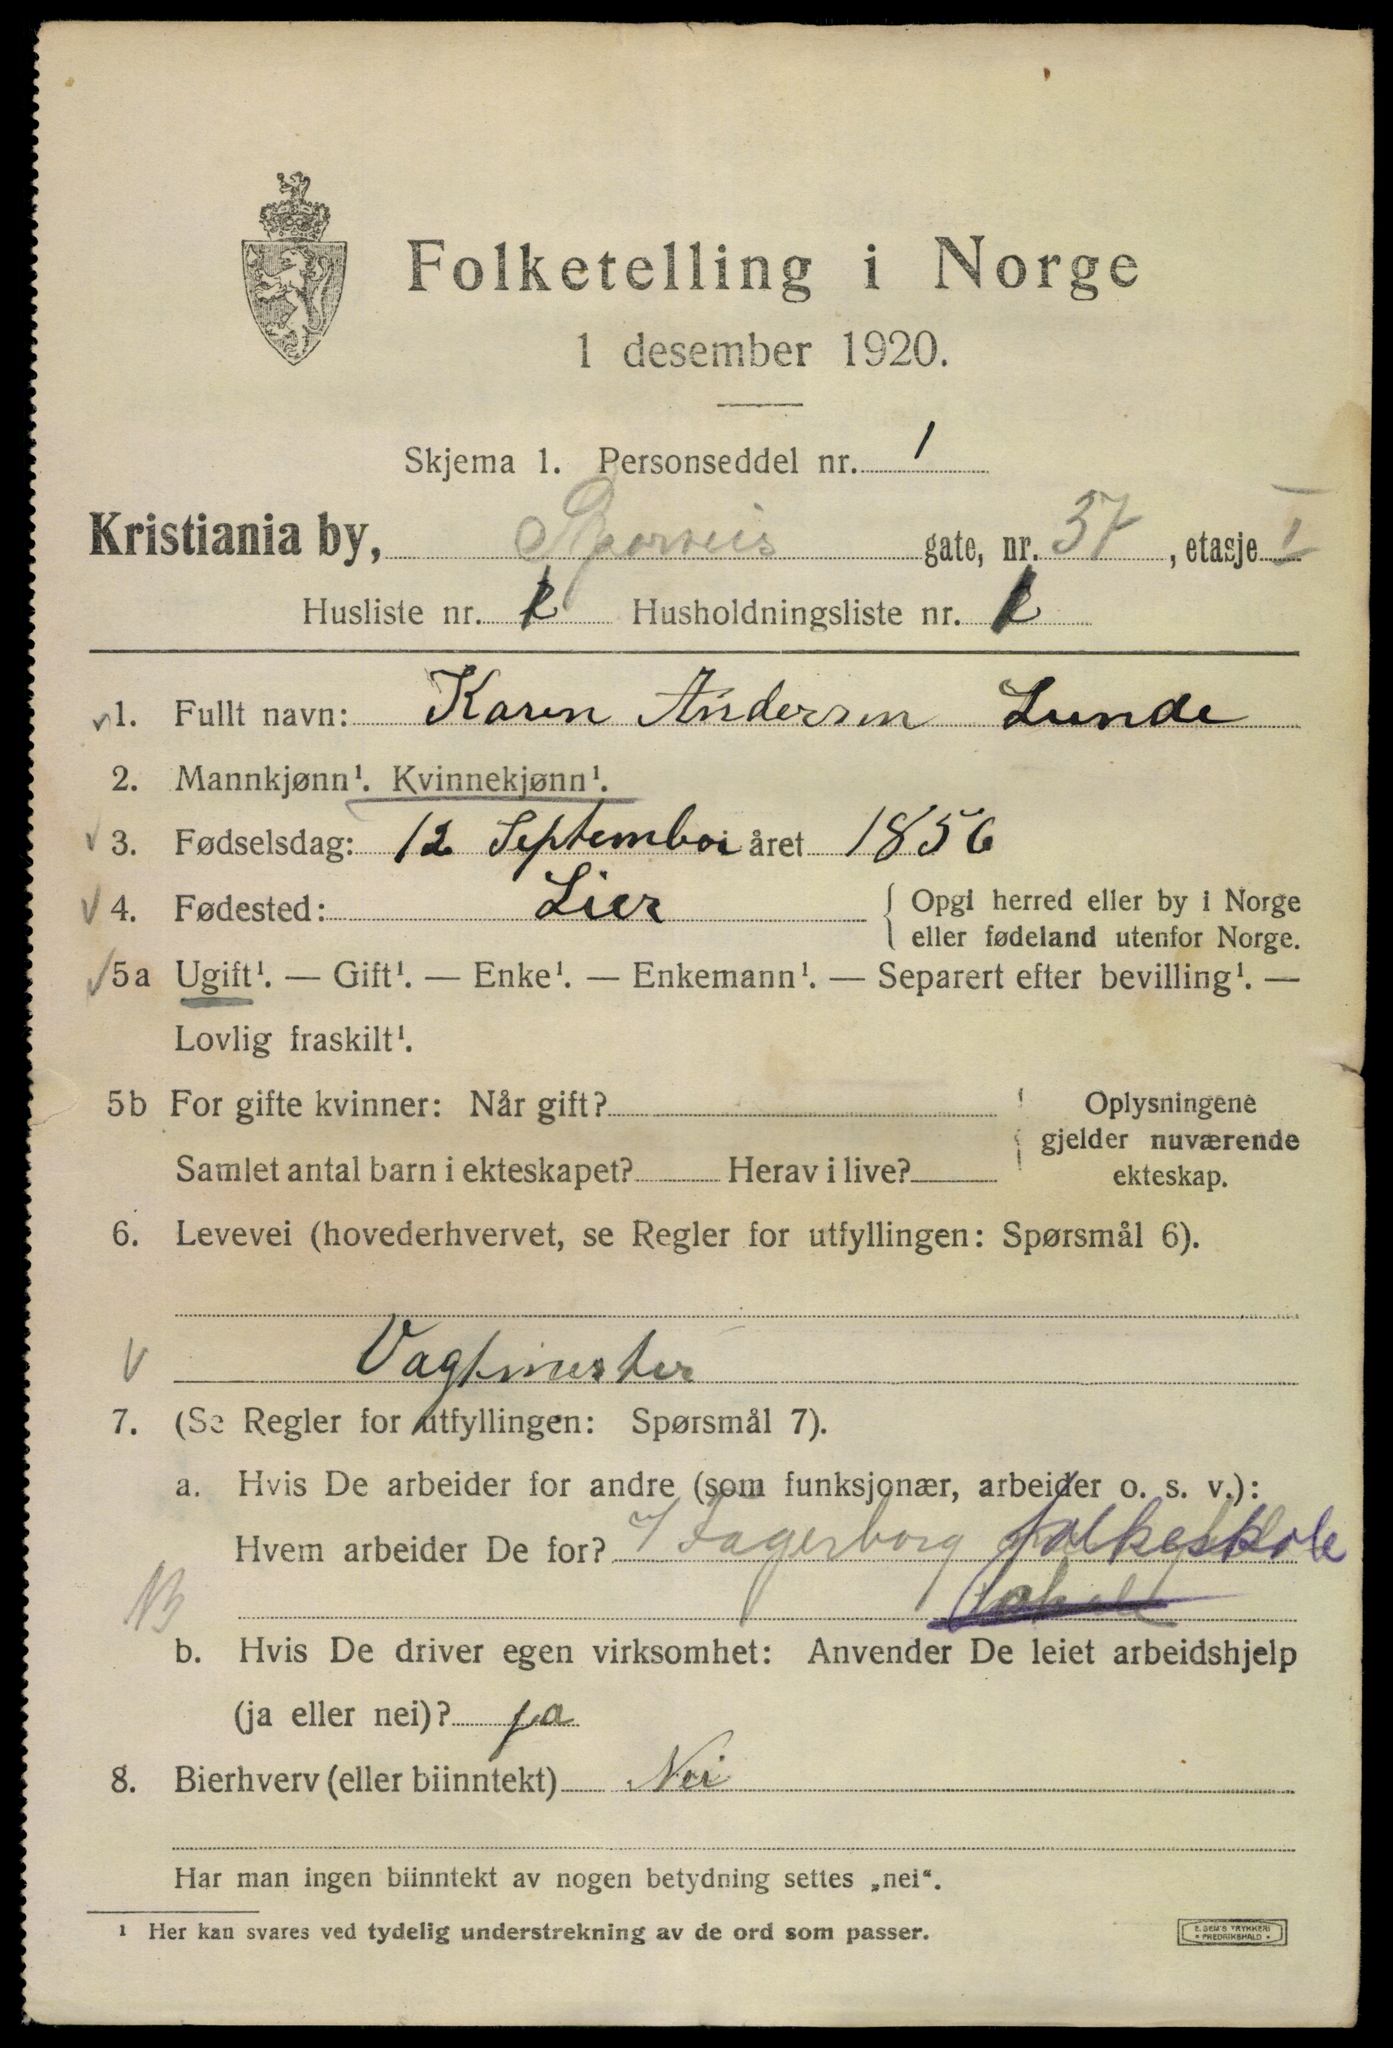 Folketelling i Norge
1 desember 1920.
Skjema 1. Personseddel nr. 1
Kristiania by, Sporveis gate, nr. 37, etasje I
Husliste nr. 1 Husholdningsliste nr. 1
1. Fullt navn: Karen Andersen Lunde
2. Mannkjønn¹. Kvinnekjønn¹.
3. Fødselsdag: 12 September året 1856
4. Fødested: Lier { Opgi herred eller by i Norge
eller fødeland utenfor Norge.
5a Ugift¹. — Gift¹. — Enke¹. — Enkemann¹. — Separert efter bevilling¹. —
Lovlig fraskilt¹.
5b For gifte kvinner: Når gift? Oplysningene
gjelder nuværende
Samlet antal barn i ekteskapet? Herav i live? ekteskap.
6. Levevei (hovederhvervet, se Regler for utfyllingen: Spørsmål 6).
V Vagtmester
7. (Se Regler for utfyllingen: Spørsmål 7).
a. Hvis De arbeider for andre (som funksjonær, arbeider o. s. v.):
Hvem arbeider De for? I Fagerborg folkeskole
NB
b. Hvis De driver egen virksomhet: Anvender De leiet arbeidshjelp
(ja eller nei)? ja
8. Bierhverv (eller biinntekt) Nei
Har man ingen biinntekt av nogen betydning settes „nei“.
¹ Her kan svares ved tydelig understrekning av de ord som passer.
E. SEM'S TRYKKERI
• FREDRIKSHALD •